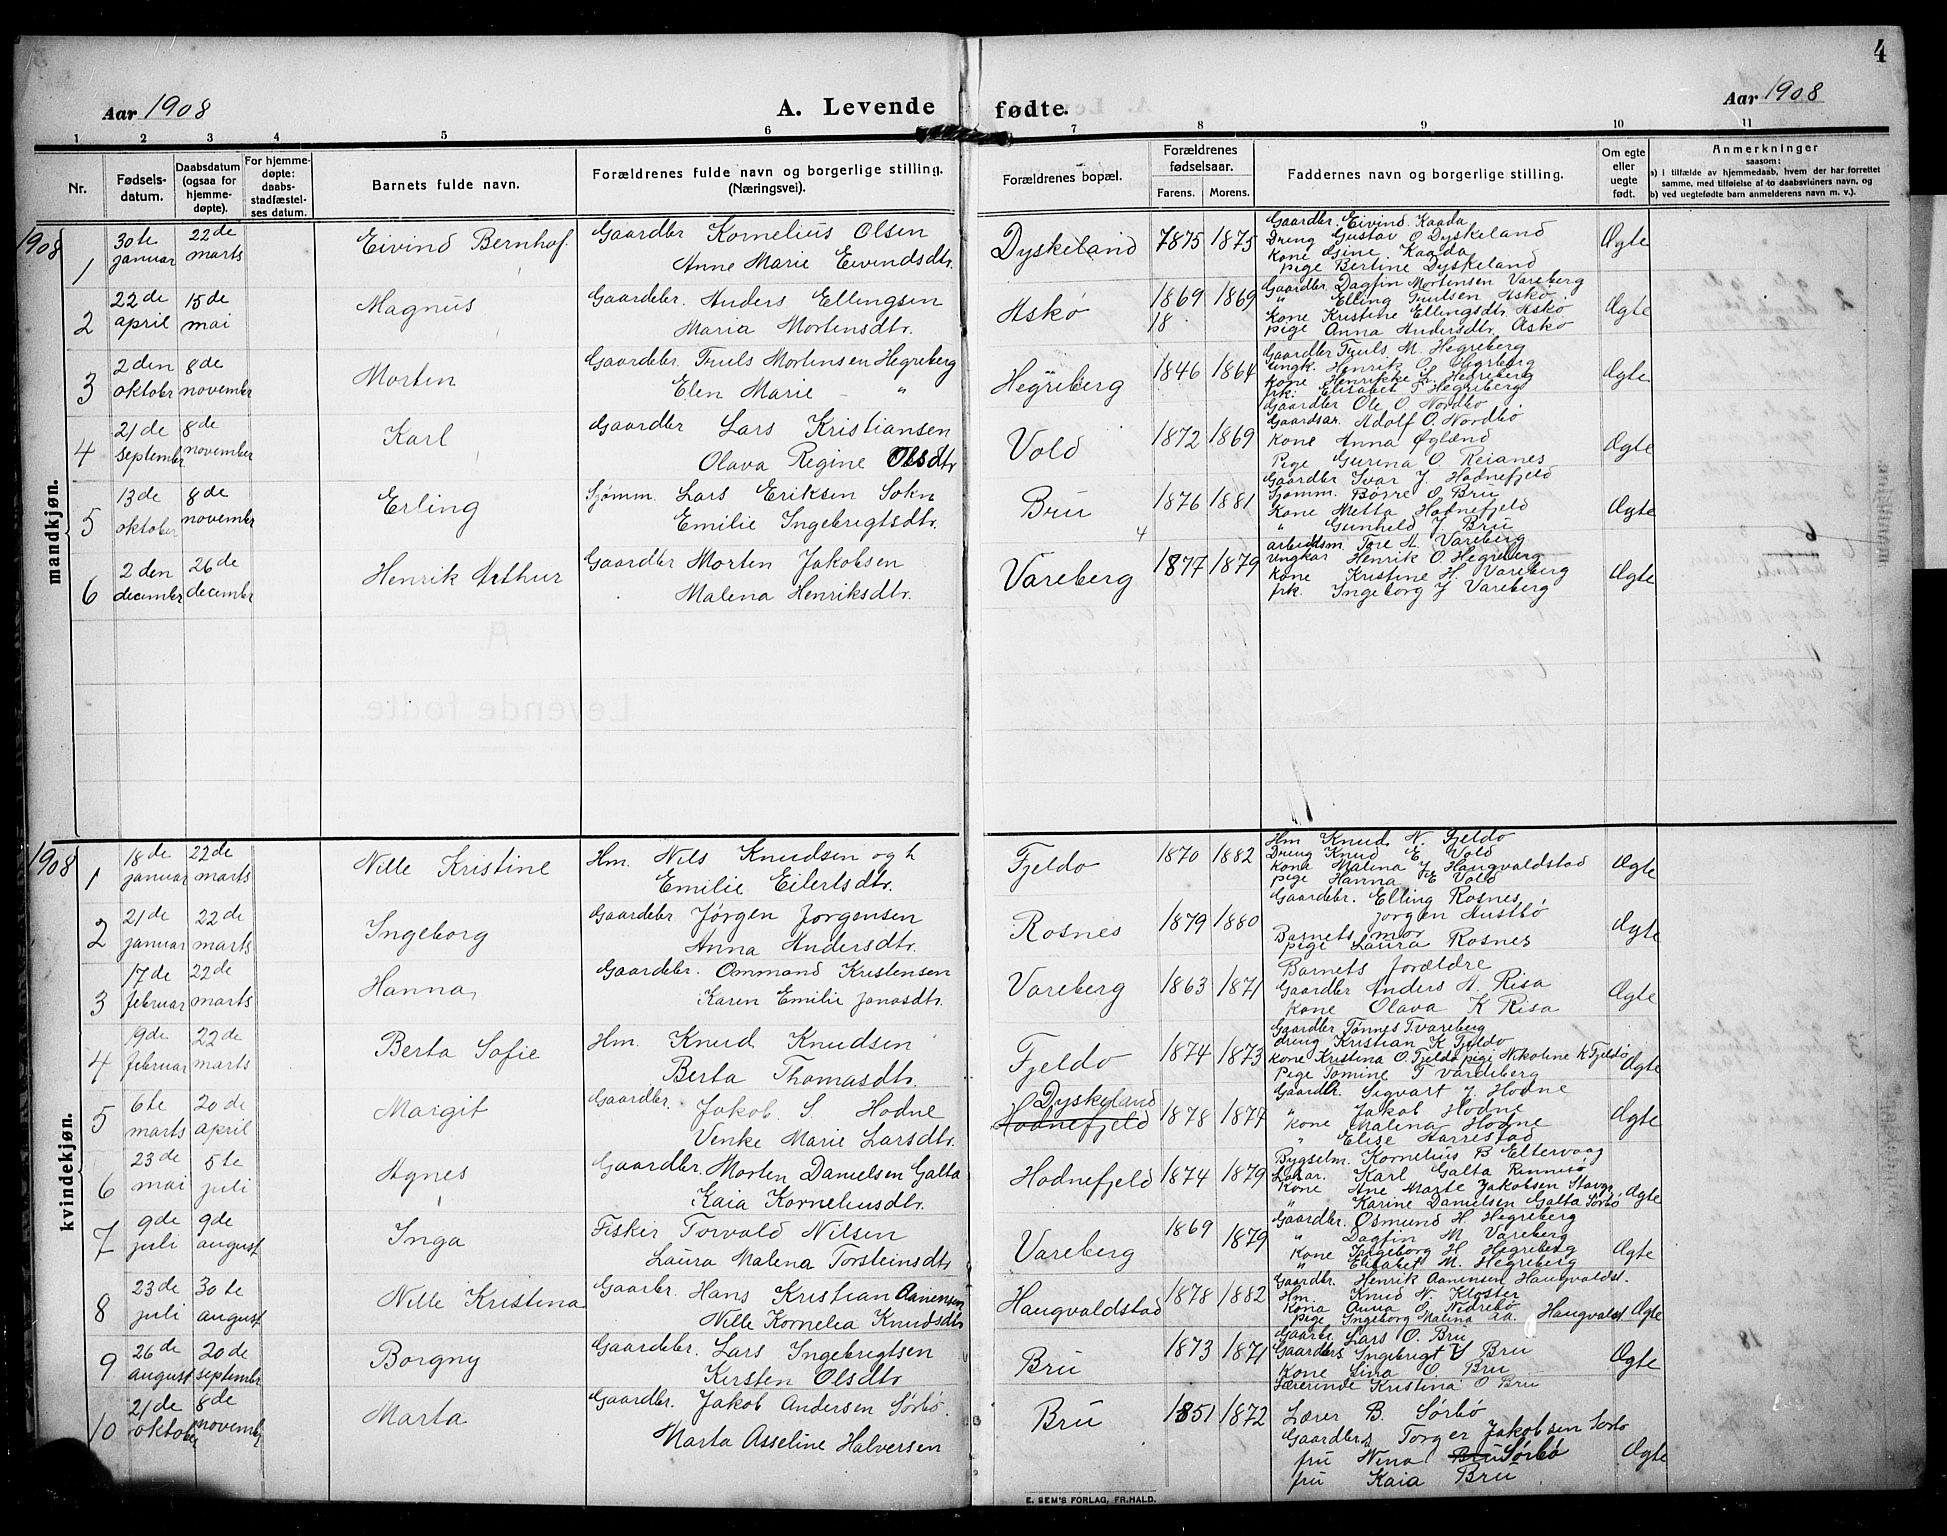 4
Aar 1908
A. Levende fødte.
Aar 1908
1 2 3 4 5 6 7 8 9 10 11
Nr.
Fødselsdatum.
Daabsdatum (ogsaa for hjemmedøpte).
For hjemmedøpte: daabsstadfæstelses datum.
Barnets fulde navn.
Forældrenes fulde navn og borgerlige stilling. (Næringsvei).
Forældrenes bopæl.
Forældrenes fødselsaar.
Farens. Morens.
Faddernes navn og borgerlige stilling.
Om egte eller uegte født.
Anmerkninger
saasom:
a) I tilfælde av hjemmedaab, hvem der har forrettet samme, med tilføielse af to daabsvidners navn, og
b) ved uegtefødte barn anmelderens navn m. v.).
mandkjøn.
1908
1 30te januar 22de marts Eivind Bernhof Gaardbr Kornelius Olsen
Anne Marie Eivindsdtr.
Dyskeland 1875 1875 Gaardbr. Eivind Kaada
Dreng Gustav O Dyskeland
Kone Sine Kaada
pige Bertine Dyskeland
Ægte
2 22de april 15de mai Magnus Gaardebr. Anders Ellingsen
Maria Mortensdtr.
Askø 1869 1869
18
Gaardbr. Dagfin Mortensen Vareberg
" Elling Trulsen Askø
Kone Kristine Ellingsdtr. Askø
pige Anna Andersdtr. Askø
Ægte
3 2den oktober 8de november Morten Gaardebr. Truls Mortensen Hegreberg
Elen Marie - "
Hegreberg 1846 1864 Gaardbr Truls M. Hegreberg
ungk. Henrik O. Hegreberg
Kone Henrikke L. Hegreberg
frk. Elisabet T Hegreberg
Ægte
4 21de september 8de november Karl Gaardbr Lars Kristiansen
Olava Regine Olsdtr
Vold 1872 1869 Gaardbr Ole O. Nordbø
Gaardsar. Adolf O. Nordbø
Kone Anna Øglænd
Pige Gurina O. Reianes
Ægte
5 13de oktober 8de november Erling Sjømm. Lars Eriksen Sokn
Emilie Ingebrigtsdtr.
Bru 1876 1881
4
Gaardbr Ivar J. Hodnefjeld
Sjømm. Børre O. Bru
Kone Metta Hodnefjeld
" Gunheld J. Bru
Ægte
6 2den december 26de december Henrik Arthur Gaardbr Morten Jakobsen
Malena Henriksdtr.
Vareberg 1877 1879 arbeidsm. Tore A. Vareberg
ungkar Henrik O. Hegreberg
Kone Kristine H. Vareberg
frk. Ingeborg J Vareberg
Ægte
kvindekjøn.
1908
1 18de januar 22de marts Nille Kristine Hm. Nils Knudsen og h
Emilie Eilertsdtr.
Fjeldo 1870 1882 Hm Knud N. Fjeldo
Dreng Knud E Vold
Kona Malena J Haugvaldstad
pige Hanna E Vold
Ægte
2 21de januar 22de marts Ingeborg Gaardebr Jørgen Jorgensen
Anna Andersdtr.
Rosnes 1879 1880 Gaardebr. Elling Rosnes
Jorgen Austbø
Barnets mor
pige Laura Rosnes
Ægte
3 17de februar 22de marts Hanna Gaardebr. Ommund Kristensen
Karen Emilie Jonasdtr.
Vareberg 1863 1871 Barnets forældre
Gaardbr Anders A. Risa
Kone Olava K Risa
Ægte
4 9de februar 22de marts Berta Sofie Hm. Knud Knudsen
Berta Thomasdtr.
Fjeldo 1874 1873 Gaardbr Tønnes T. vareberg
dreng Kristian K Fjeldo
Kone Kristina O. Fjeldo pige Nikoline K Fjeldo
Pige Tomine T vareberg
Ægte
5 6te marts 20de april Margit Gaardbr. Jakob S Hodne
Venke Marie Larsdtr.
Dyskeland
Hodnefjeld 1878 1874 Gaardbr. Sigvart J. Hodne
" Jakob Hodne
Kone Malena Hodne
" Elise Harrestad
Ægte
6 23de mai 5te juli Agnes Gaardbr. Morten Danielsen Galta
Kaia Korneliusdtr.
Hodnefjeld 1874 1879 Bygselm. Kornelius B Eltervaag
Karl Galta Rennesø
Kone Ane Marte Jakobsen Stavgr.
" Karine Danielsen Galta Sørbø
Ægte
7 9de juli 9de august Inga Fisker Torvald Nilsen
Laura Malena Torsteinsdtr
Vareberg 1869 1879 Gaardbr. Osmund H. Hegreberg
" Dagfin M. Vareberg
Kone Ingeborg H Hegreberg
" Elisabet M. Hegreberg
Ægte
8 23de juli 30te august Nille Kristina Gaarbr. Hans Kristian Aanensen
Nille Kornelia Knudsdtr
Haugvaldstad 1878 1882 Gaardbr. Henrik Aanensen Haugvaldst.
Hm. Knud N. Kloster
Kona Anna O. Nedrebø
pige Ingeborg Malina Aa. Haugvaldst
Ægte
9 26de august 20de september Borgny Gaardebr. Lars Ingebrigtsen
Kirsten Olsdtr
Bru 1873 1871 Gaarbr. Lars O. Bru
Gaardbrs Ingebrigt Bru
Kone Sina O. Bru
Lærerinde Kristina O Bru
Ægte
10 21de oktober 8de november Marta Gaardbr. Jakob Andersen Sørbø.
Marta Asseline Halversen
Bru 1851 1872 Lærer B. Sørbø
Gaardbr Torger Jakobsen Sørbø
fru Nina Bru Sørbø
fru Kaia Bru
Ægte
E. SEM'S FORLAG, FR.HALD.